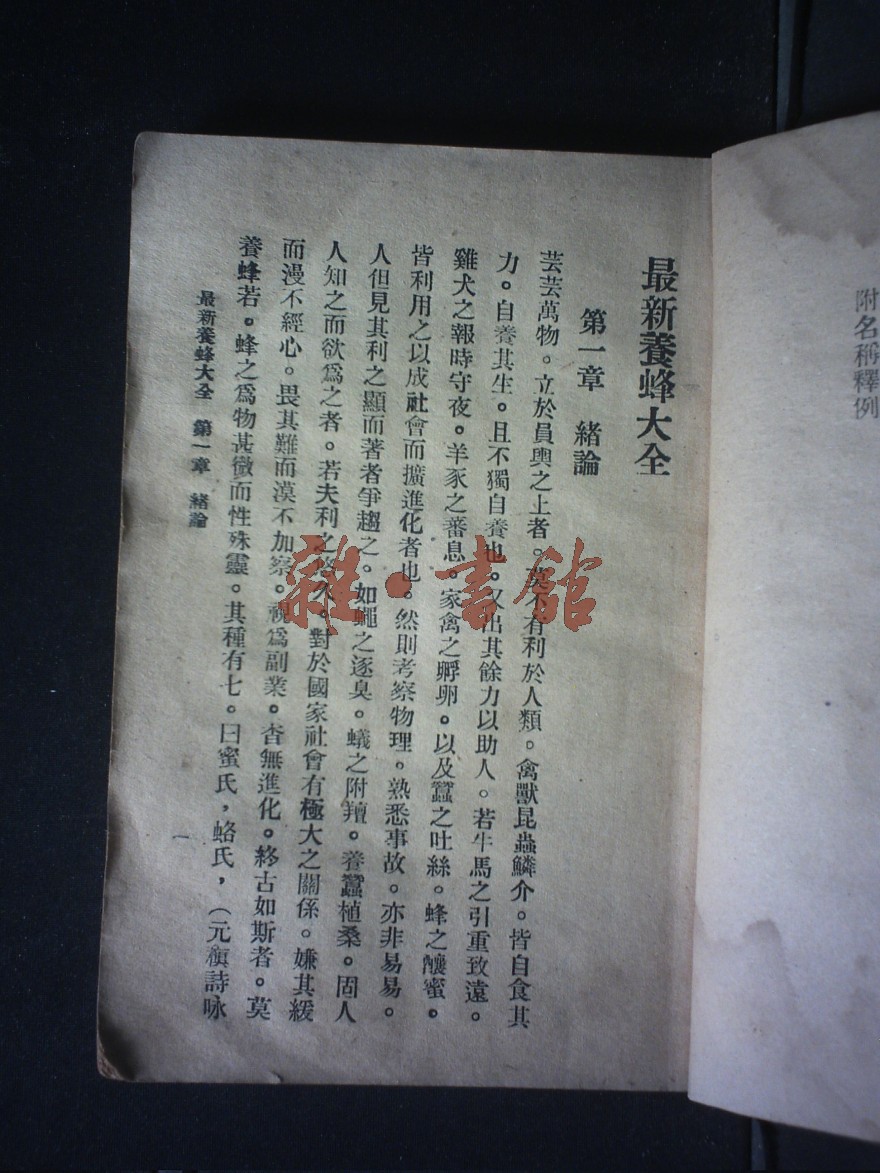 附名稱釋例
最新養蜂大全
第一章　緒論
芸芸萬物。立於員輿之上者。莫不有利於人類。禽獸昆蟲鱗介。皆自食其
力。自養其生。且不獨自養也。又出其餘力以助人。若牛馬之引重致遠。
雞犬之報時守夜。羊豕之蕃息。家禽之孵卵。以及蠶之吐絲。蜂之釀蜜。
皆利用之以成社會而擴進化者也。然則考察物理。熟悉事故。亦非易易。
人但見其利之顯而著者爭趨之。如蠅之逐臭。蟻之附羶。養蠶植桑。固人
人知之而欲爲之者。若夫利之悠久。對於國家社會有極大之關係。嫌其緩
而漫不經心。畏其難而漠不加察。視爲副業。杳無進化。終古如斯者。莫
養蜂若。蜂之爲物甚微而性殊靈。其種有七。曰蜜氏，蛒氏，（元稹詩咏
最新養蜂大全　第一章　緒論
一
雜·書館